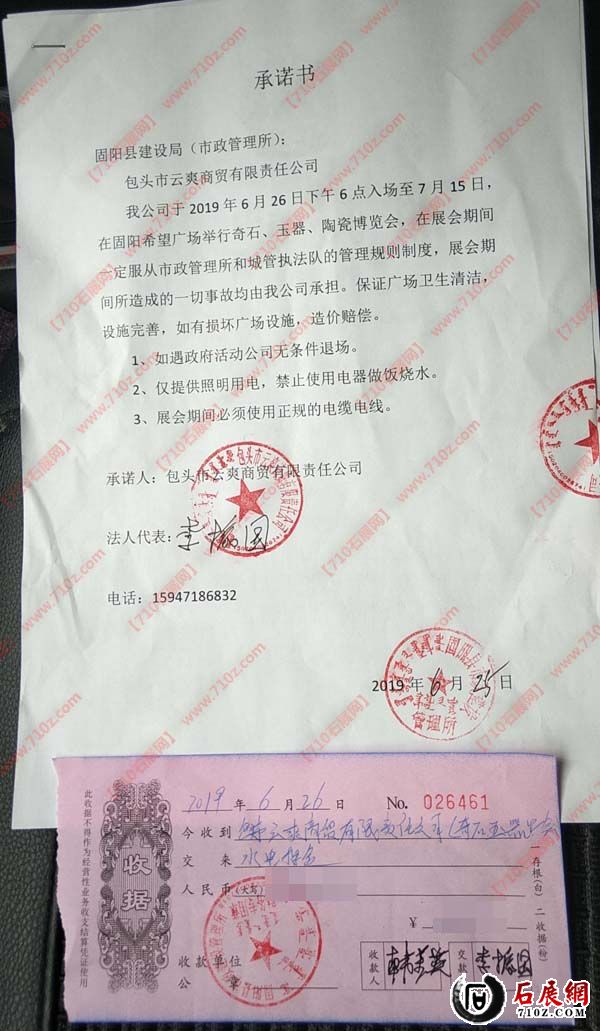 承诺书
固阳县建设局（市政管理所）：
包头市云爽商贸有限责任公司
我公司于 2019 年 6 月 26 日下午 6 点入场至 7 月 15 日，
在固阳希望广场举行奇石、玉器、陶瓷博览会，在展会期间
一定服从市政管理所和城管执法队的管理规则制度，展会期
间所造成的一切事故均由我公司承担。保证广场卫生清洁，
设施完善，如有损坏广场设施，造价赔偿。
1、如遇政府活动公司无条件退场。
2、仅提供照明用电，禁止使用电器做饭烧水。
3、展会期间必须使用正规的电缆电线。
承诺人：包头市云爽商贸有限责任公司
法人代表：李振国
电话：15947186832
2019 年 6 月 25 日
管理所
2019 年 6 月 26 日 No. 026461
今收到 云爽商贸有限责任公司
交来 水电押金
人民币（大写）
¥
收款单位
公章
收款人
交款人 李振国
收据
此收据不得作为经营性业务收支结算凭证使用
一存根（白） 二收据（粉）
【710石展网】www.710z.com
石展网
710Z.COM